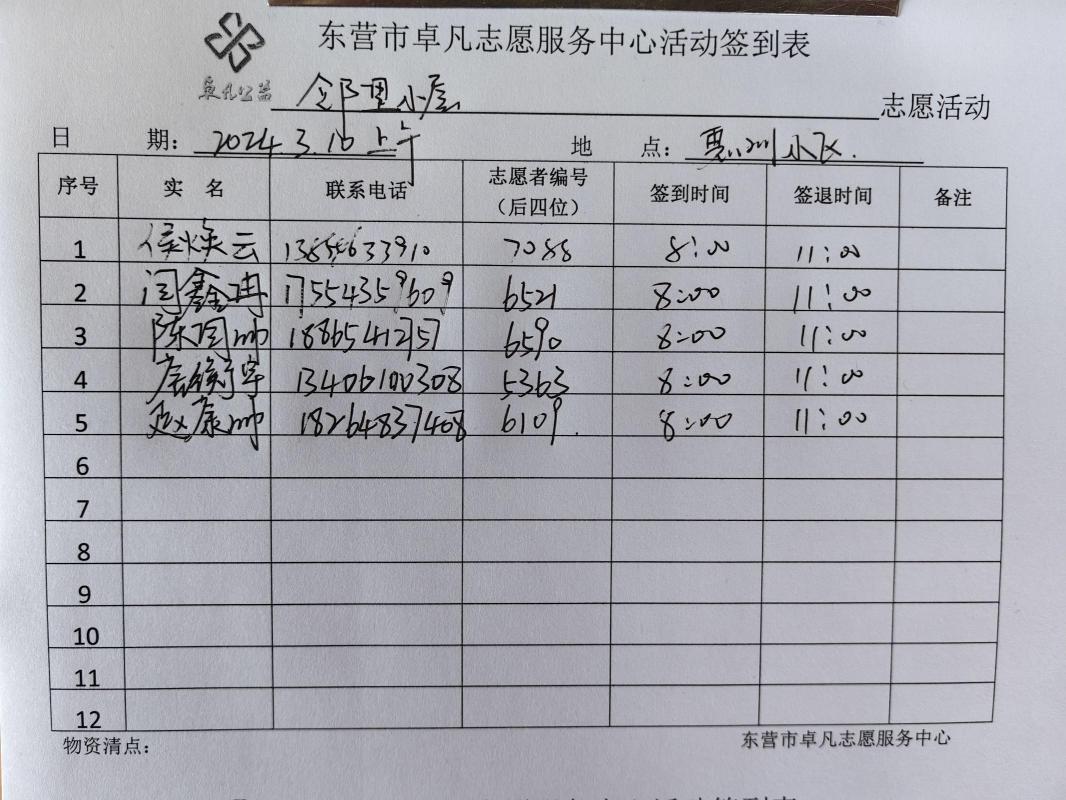 东营市卓凡志愿服务中心活动签到表
卓凡公益
邻里小屋 志愿活动
日 期: 2024.3.16 上午 地 点: 惠州小区.
序号 实 名 联系电话 志愿者编号（后四位） 签到时间 签退时间 备注
1 侯焕云 7088 8:00 11:00
2 闫鑫冉 17554359609 6521 8:00 11:00
3 陈国帅 18865412757 6590 8:00 11:00
4 13406100308 5363 8:00 11:00
5 赵康帅 18264837408 6109. 8:00 11:00
6
7
8
9
10
11
12
物资清点: 东营市卓凡志愿服务中心